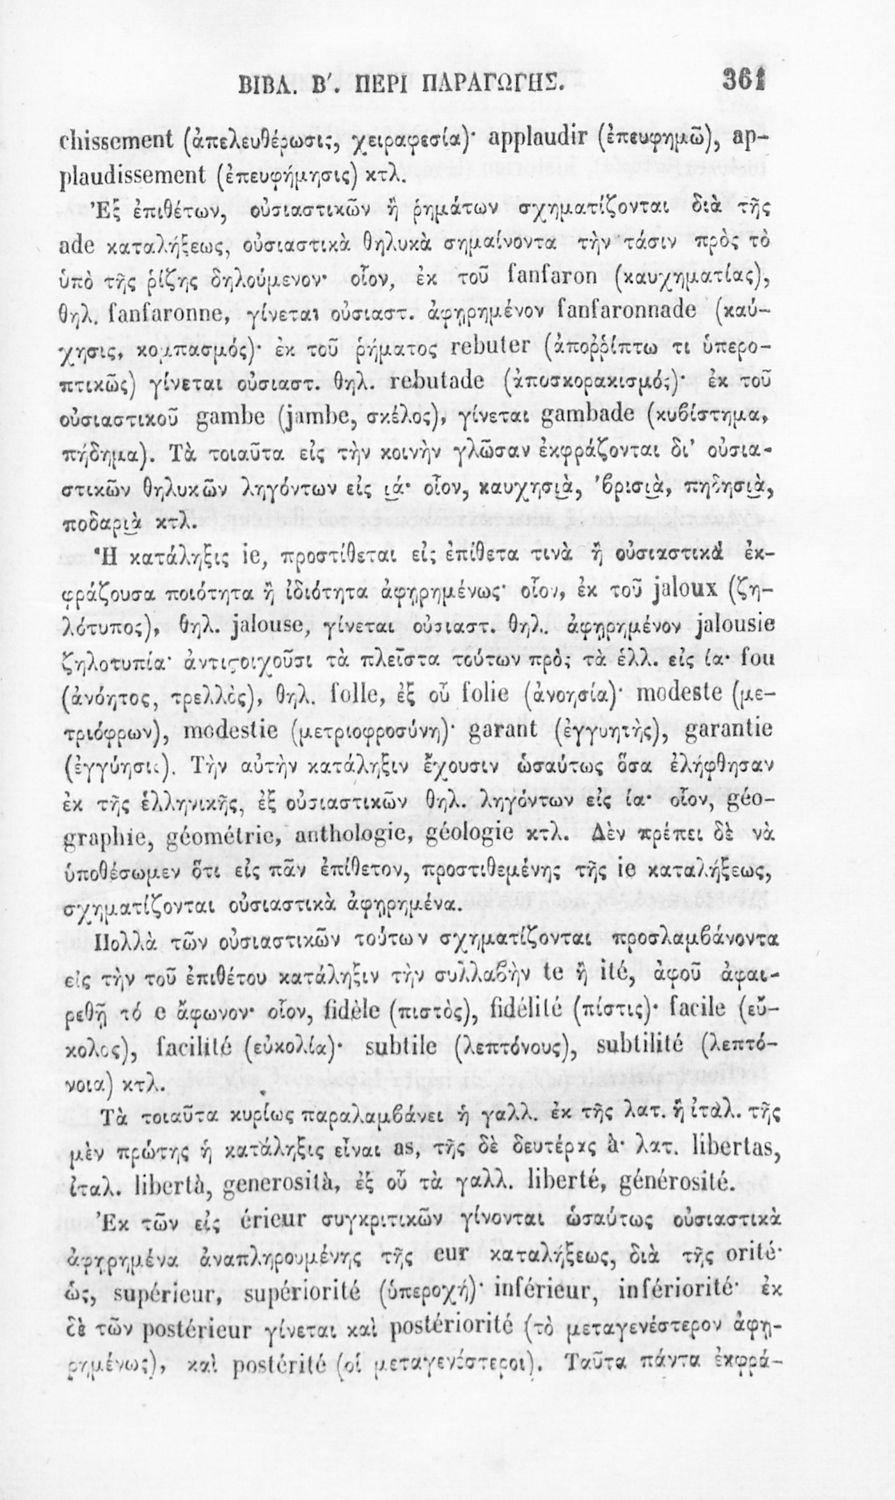 ΒΙΒΛ. Β΄. ΠΕΡΙ ΠΑΡΑΓΩΓΗΣ. 361
chissement (ἀπελευθέρωσις, χειραφεσία)· applaudir (ἐπευφημῶ), ap-
plaudissement (ἐπευφήμησις) κτλ.
Ἐξ ἐπιθέτων, οὐσιαστικῶν ἢ ῥημάτων σχηματίζονται διὰ τῆς
ade καταλήξεως, οὐσιαστικὰ θηλυκὰ σημαίνοντα τὴν τάσιν πρὸς τὸ
ὑπὸ τῆς ῥίζης δηλούμενον· οἷον, ἐκ τοῦ fanfaron (καυχηματίας),
θηλ. fanfaronne, γίνεται οὐσιαστ. ἀφῃρημένον fanfaronnade (καύ-
χησις, κομπασμός)· ἐκ τοῦ ῥήματος rebuter (ἀποῤῥίπτω τι ὑπερο-
πτικῶς) γίνεται οὐσιαστ. θηλ. rebutade (ἀποσκορακισμός)· ἐκ τοῦ
οὐσιαστικοῦ gambe (jambe, σκέλος), γίνεται gambade (κυβίστημα,
πήδημα). Τὰ τοιαῦτα εἰς τὴν κοινὴν γλῶσαν ἐκφράζονται δι' οὐσια-
στικῶν θηλυκῶν ληγόντων εἰς ι̯ά· οἷον, καυχησι̯ὰ, 'βρισι̯ὰ, πηδησι̯ὰ,
ποδαρι̯ὰ κτλ.
Ἡ κατάληξις ie, προστίθεται εἰς ἐπίθετα τινὰ ἢ οὐσιαστικὰ ἐκ-
φράζουσα ποιότητα ἢ ἰδιότητα ἀφῃρημένως· οἷον, ἐκ τοῦ jaloux (ζη-
λότυπος), θηλ. jalouse, γίνεται οὐσιαστ. θηλ. ἀφῃρημένον jalousie
ζηλοτυπία· ἀντιστοιχοῦσι τὰ πλεῖστα τούτων πρὸς τὰ ἑλλ. εἰς ία· fou
(ἀνόητος, τρελλὸς), θηλ. folle, ἐξ οὗ folie (ἀνοησία)· modeste (με-
τριόφρων), modestie (μετριοφροσύνη)· garant (ἐγγυητὴς), garantie
(ἐγγύησις). Τὴν αὐτὴν κατάληξιν ἔχουσιν ὡσαύτως ὅσα ἐλήφθησαν
ἐκ τῆς ἑλληνικῆς, ἐξ οὐσιαστικῶν θηλ. ληγόντων εἰς ία· οἷον, géo-
graphie, géométrie, anthologie, géologie κτλ. Δὲν πρέπει δὲ νὰ
ὑποθέσωμεν ὅτι εἰς πᾶν ἐπίθετον, προστιθεμένης τῆς ie καταλήξεως,
σχηματίζονται οὐσιαστικὰ ἀφῃρημένα.
Πολλὰ τῶν οὐσιαστικῶν τούτων σχηματίζονται προσλαμβάνοντα
εἰς τὴν τοῦ ἐπιθέτου κατάληξιν τὴν συλλαβὴν te ἢ ité, ἀφοῦ ἀφαι-
ρεθῇ τό e ἄφωνον· οἷον, fidèle (πιστὸς), fidélité (πίστις)· facile (εὔ-
κολος), facilité (εὐκολία)· subtile (λεπτόνους), subtilité (λεπτό-
νοια) κτλ.
Τὰ τοιαῦτα κυρίως παραλαμβάνει ἡ γαλλ. ἐκ τῆς λατ. ἢ ἰταλ. τῆς
μὲν πρώτης ἡ κατάληξις εἶναι as, τῆς δὲ δευτέρας à· λατ. libertas,
ἰταλ. libertà, generosità, ἐξ οὗ τὰ γαλλ. liberté, générosité.
Ἐκ τῶν εἰς érieur συγκριτικῶν γίνονται ὡσαύτως οὐσιαστικὰ
ἀφῃρημένα ἀναπληρουμένης τῆς eur καταλήξεως, διὰ τῆς orité·
ὡς, supérieur, supériorité (ὑπεροχή)· inférieur, infériorité· ἐκ
δὲ τῶν postérieur γίνεται καὶ postériorité (τὸ μεταγενέστερον ἀφῃ-
ρημένως), καὶ postérité (οἱ μεταγενέστεροι). Ταῦτα πάντα ἐκφρά-